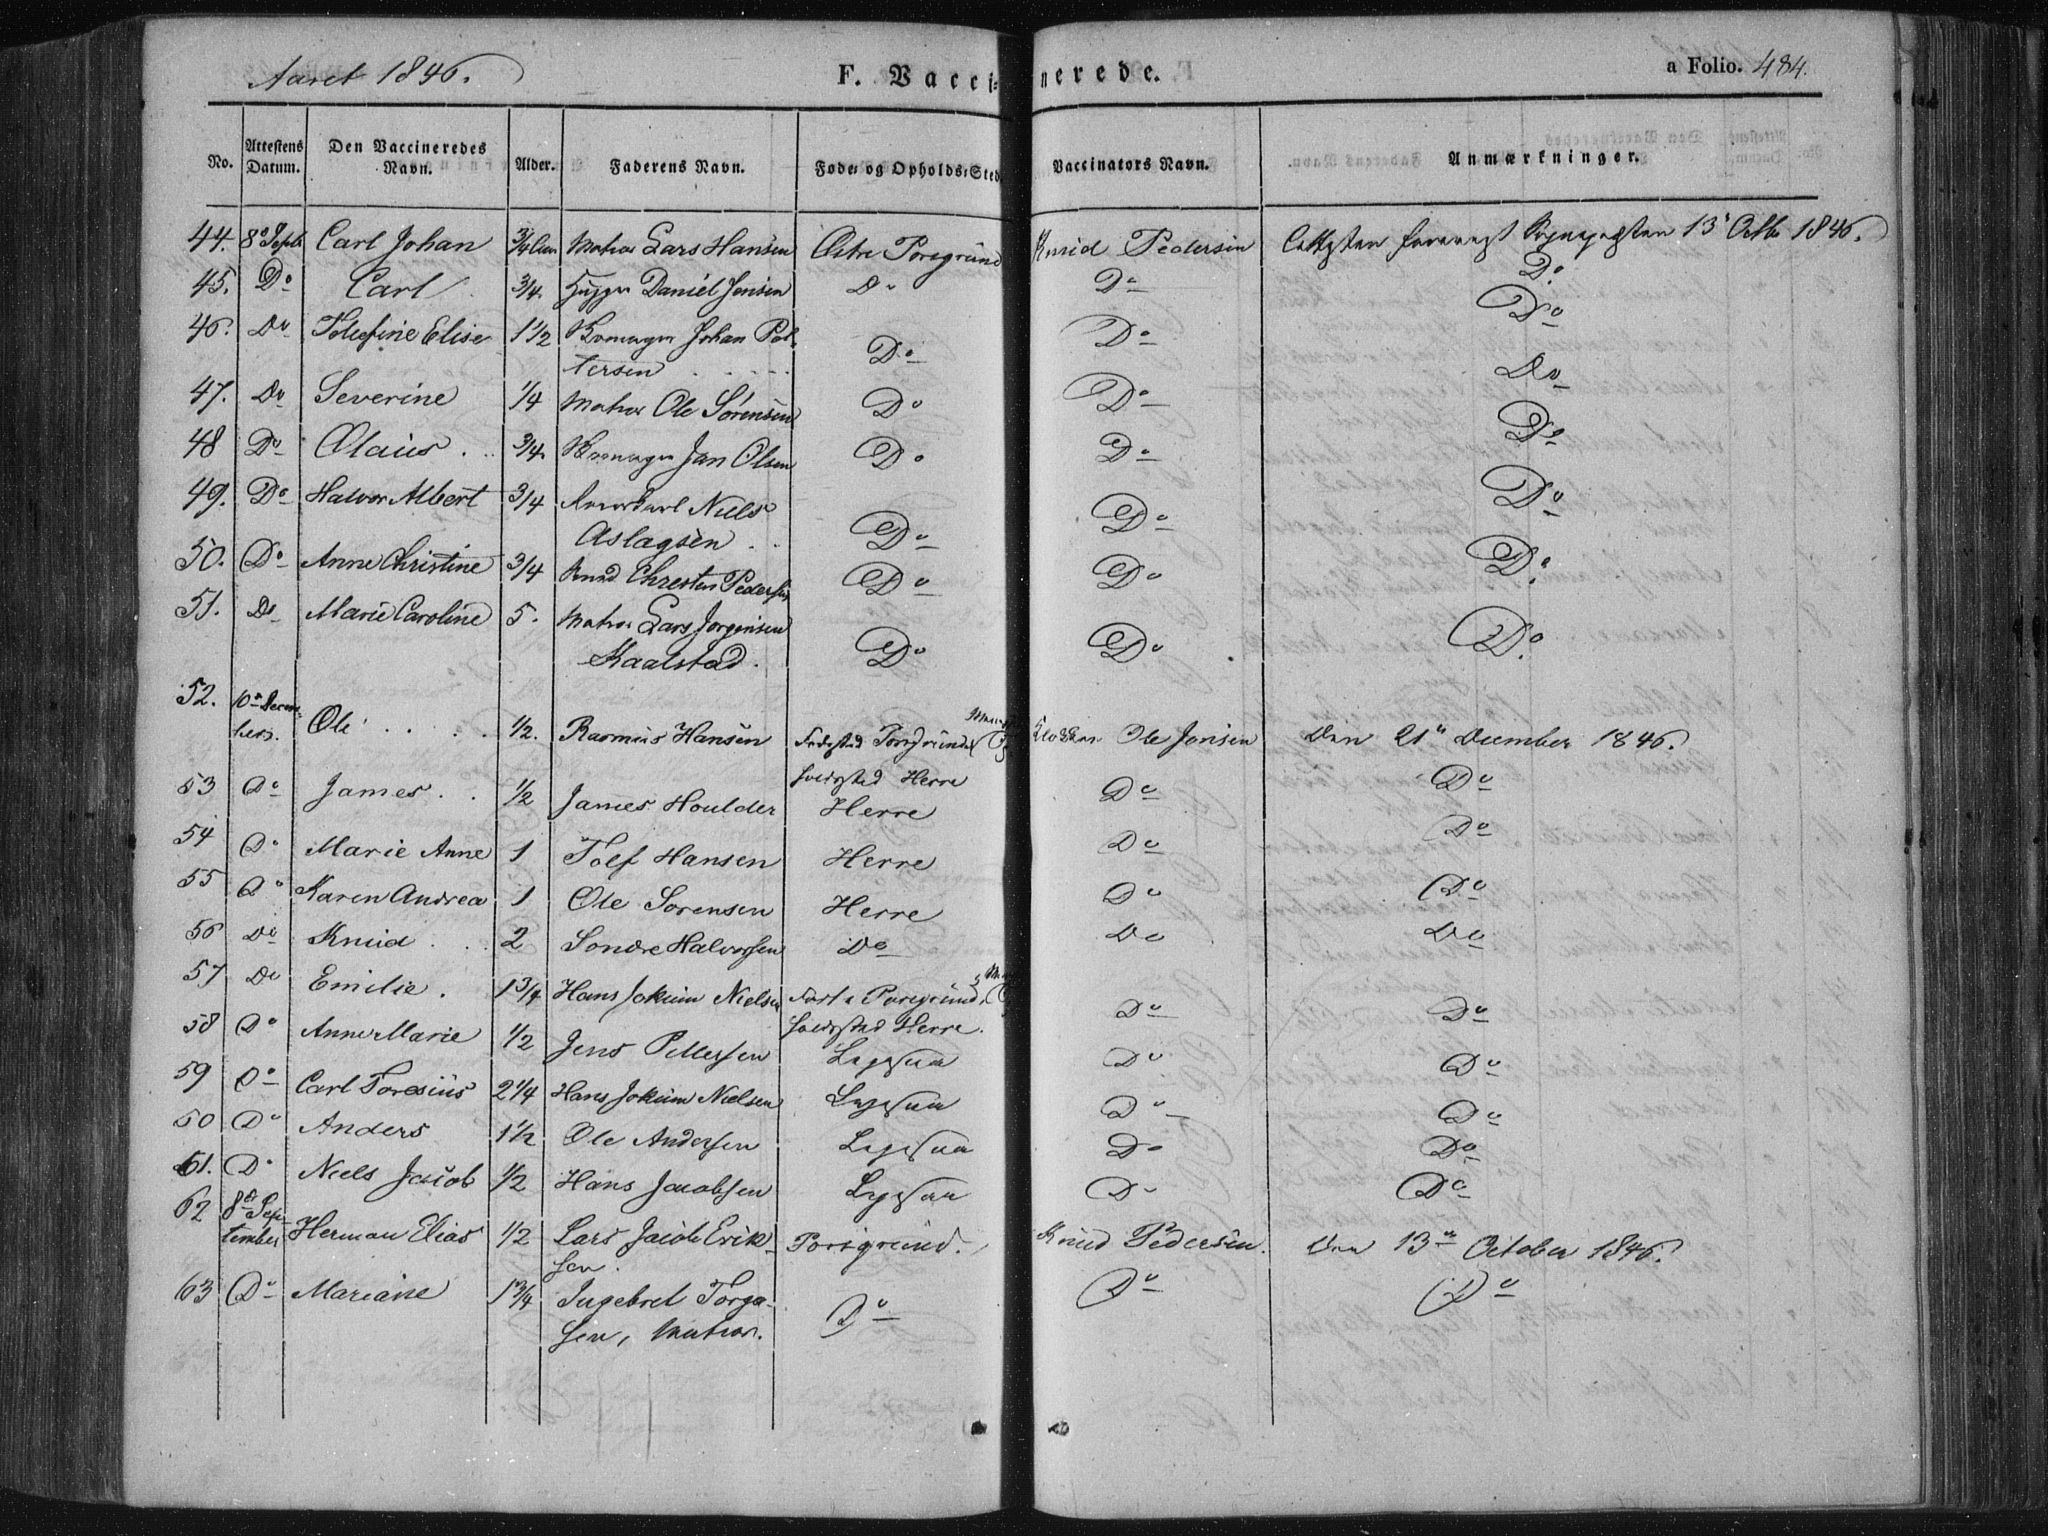 Aaret 1846.
F. Vaccinerede.
a Folio. 484.
No. Attestens Datum. Den Vaccineredes Navn. Alder. Faderens Navn. Føde- og Opholds-Sted Vaccinators Navn. Anmærkninger.
44. 8de Septb Carl Johan 3/4 Matros Lars Hansen Østre Porsgrund Knud Pedersen 13de Octbr 1846.
45. Do Carl 3/4. Daniel Jensen Do Do Do
46. Do Josefine Elise 1 1/2 Johan Pet-
tersen Do Do Do
47. Do Severine 1/4 Matros Ole Sørensen Do Do Do
48 Do Olaus 3/4. Jan Olsen Do Do Do
49. Do Halvor Albert 3/4 Niels
Aslagsen Do Do Do
50. Do Anne Christine 3/4 Knud Christen Pedersen Do Do Do
51. Do Marie Caroline 5. Matros Lars Jørgensen
Kaalstad. Do Do Do
52. 10de Decem-
bers. Ole 1/2. Rasmus Hansen Fødested Porsgrund Klokker Ole Jensen Den 21de December 1846.
Herre
53 Do James 1/2 James Houlder Herre Do Do
54 Do Marie Anne 1 Tolf Hansen Herre Do Do
55 Do Karen Andrea 1 Ole Sorensen Herre Do Do
56 Do Knud 2 Sondre Halvorsen Do Do Do
57 Do Emilie. 1 3/4 Hans Jokum Nielsen Porsgrund Do Do
Herre.
58 Do Anne Marie 1/2 Jens Pettersen Do Do
59 Do Carl Toresius 2 1/4 Hans Jokum Nielsen Do Do
60 Do Anders 1 1/2 Ole Andersen Do Do
61. Do Niels Jacob 1/2 Hans Jacobsen Do Do
62 8de Sep-
tember Herman Elias 1/2 Lars Jacob Erik-
sen. Porsgrund. Knud Pedersen. Den 13de October 1846.
63 Do Mariane 1 3/4 Ingebret Torger-
sen, Matros. Do Do Do